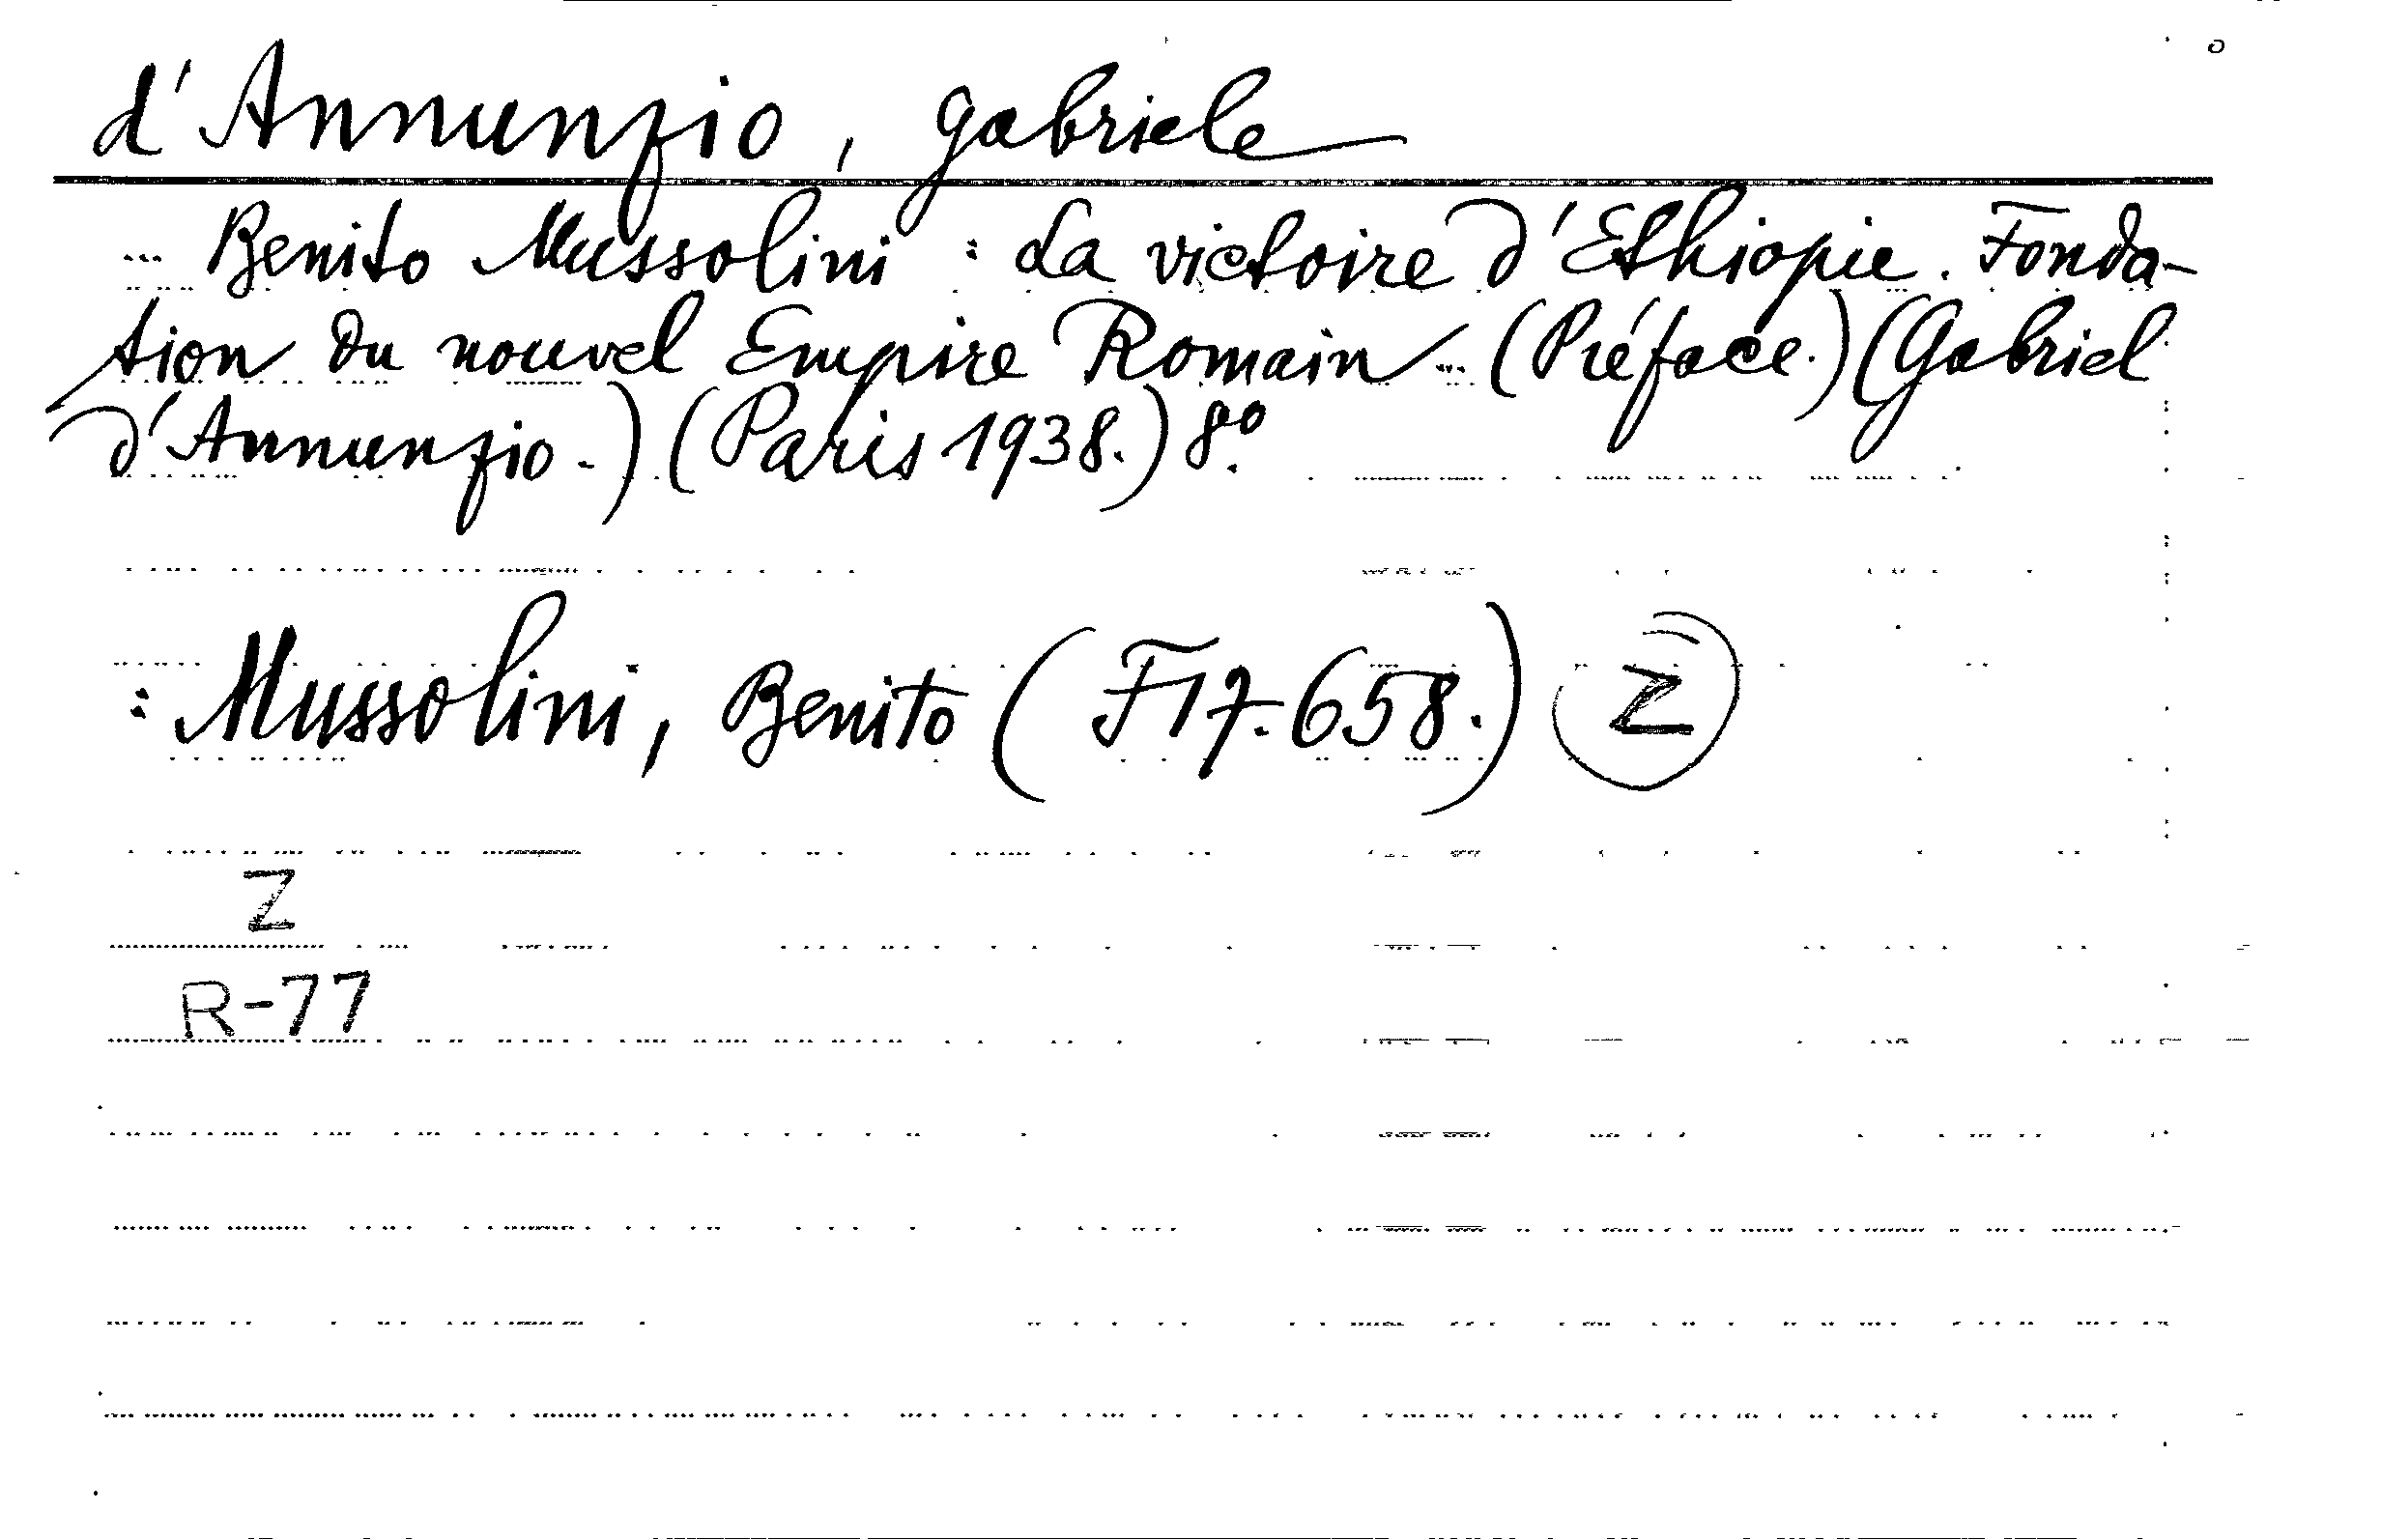 d'Annunzio, Gabriele
... Benito Mussolini : La victoire d'Ethiopie. Fonda-
tion du nouvel Empire Romain ... (Préface.) (Gabriel
d'Annunzio.) (Paris 1938.) 8º.
: Mussolini, Benito (F17.658.) Z
Z
R-77